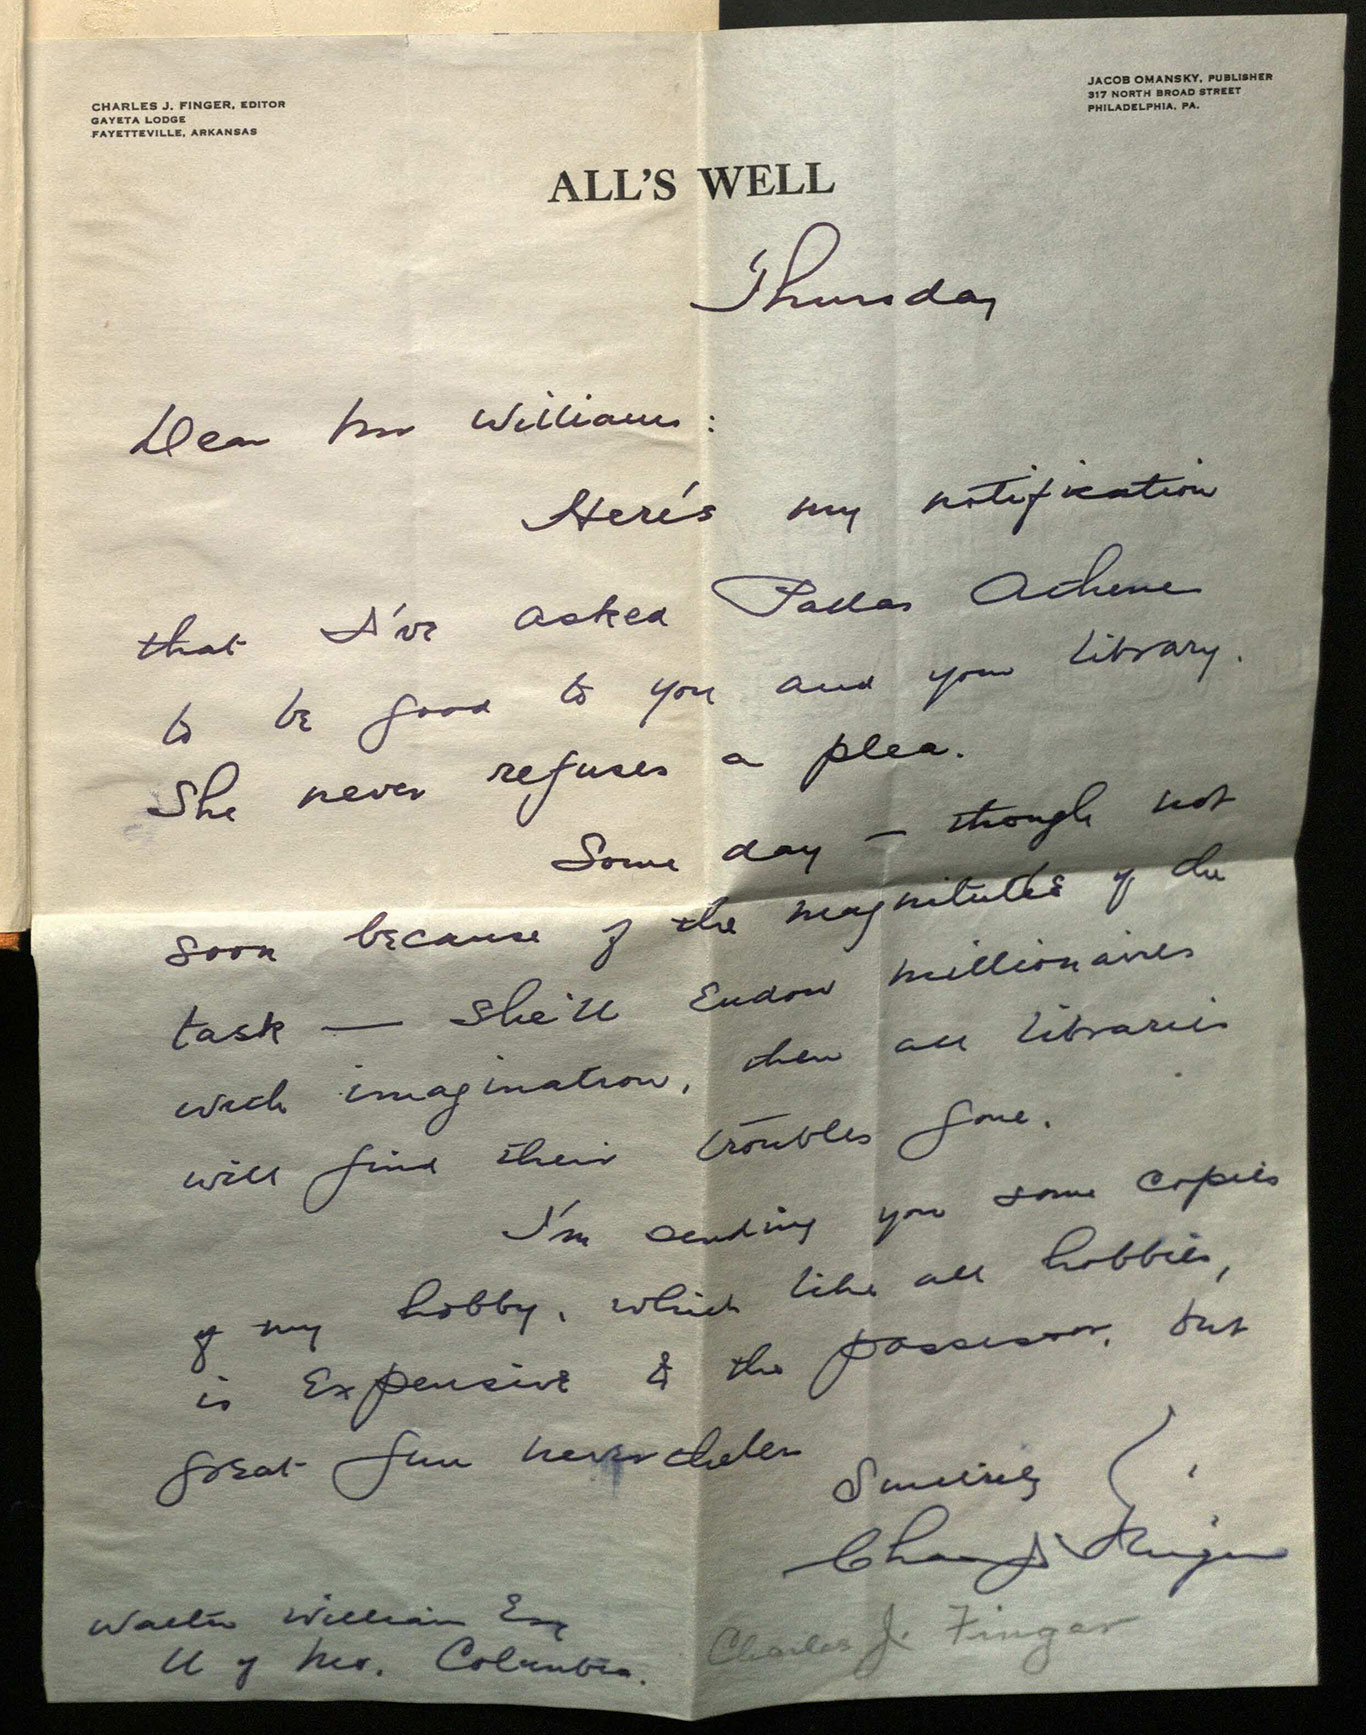 CHARLES J. FINGER, EDITOR
GAYETA LODGE
FAYETTEVILLE, ARKANSAS
JACOB OMANSKY, PUBLISHER
317 NORTH BROAD STREET
PHILADELPHIA, PA.
ALL'S WELL
Thursday
Dear Mr Williams:
Here's my notification
that I've asked Pallas Athene
to be good to you and your library.
She never refuses a plea.
Some day — though not
soon because of the magnitude of the
task — she'll endow millionaires
with imagination, then all libraries
will find their troubles gone.
I'm sending you some copies
of my hobby, which like all hobbies,
is expensive & the possessor, but
great fun nevertheless
Sincerely
Chas J Finger
Walter William Esq
U of Mo. Columbia.
Charles J. Finger